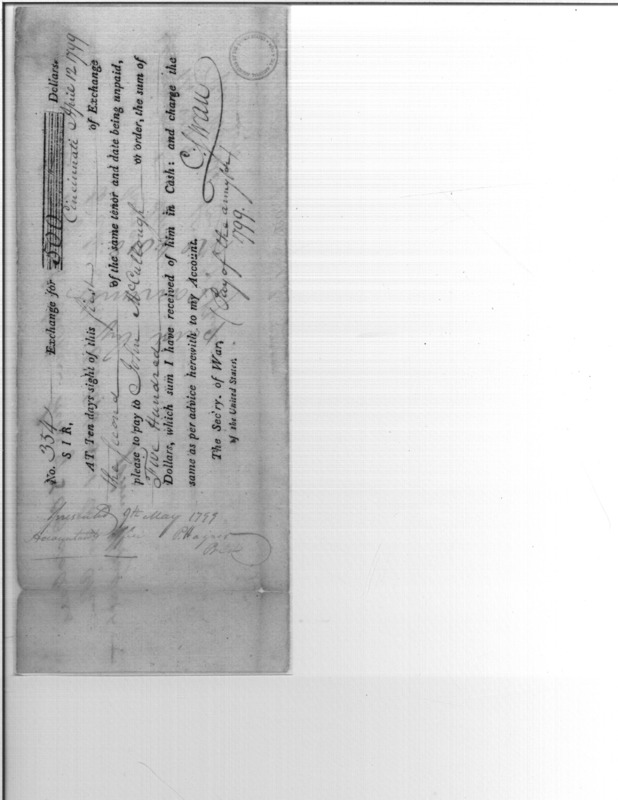 No. 354 Exchange for 500 Dollars.
Cincinnati April 12 1799
SIR,
AT Ten days sight of this first of Exchange
the second of the same tenor and date being unpaid,
please to pay to John McCullough or order, the sum of
Five Hundred
Dollars, which sum I have received of him in Cash: and charge the
same as per advice herewith to my Account.
C. Swan
The Sec'ry. of War,
of the United States.
(Pay of the army
1799.
Presented 9th May 1799
Accountants Office